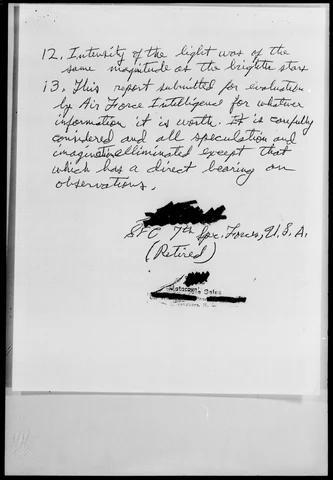 12. Intensity of the light was of the
same magnitude as the brighter stars
13. This report submitted for evaluation
by Air Force Intelligence for whatever
information it is worth. It is carefully
considered and all speculation and
imagination elliminated except that
which has a direct bearing on
observations.
SFC 7th Spc. Forces, U.S.A.
(Retired)
Sales